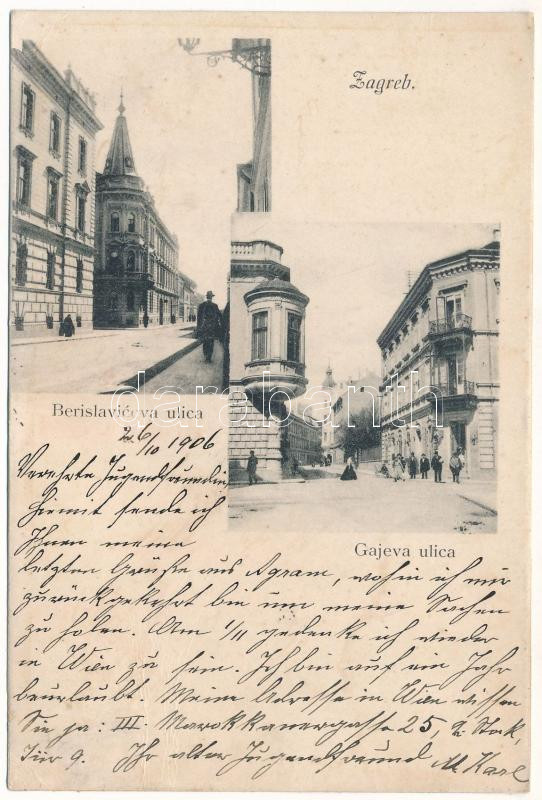 Zagreb.
Berislavićeva ulica
Gajeva ulica
darabanth
26/10 1906
Verehrte Jugendfreundin
hiemit sende ich
Ihnen meine
letzten Grüße aus Agram, wohin ich nur
zurückgekehrt bin um meine Sachen
zu holen. Am 1/11 gedenke ich wieder
in Wien zu sein. Ich bin auf ein Jahr
beurlaubt. Meine Adresse in Wien wissen
Sie ja: III. Marokkanergasse 25, 2. Stock,
Tür 9. Ihr alter Jugendfreund M Karl